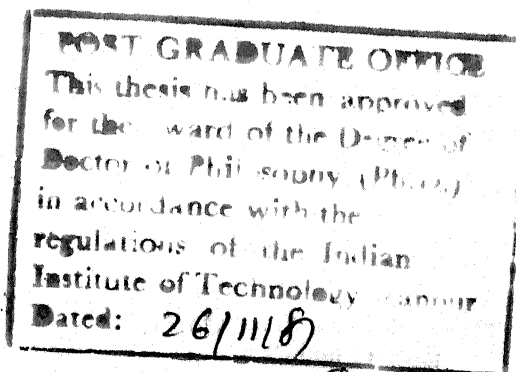 POST GRADUATE OFFICE
This thesis has been approved
for the award of the Degree of
Doctor of Philosophy (Ph.D.)
in accordance with the
regulations of the Indian
Institute of Technology Kanpur
Dated: 26/11/87